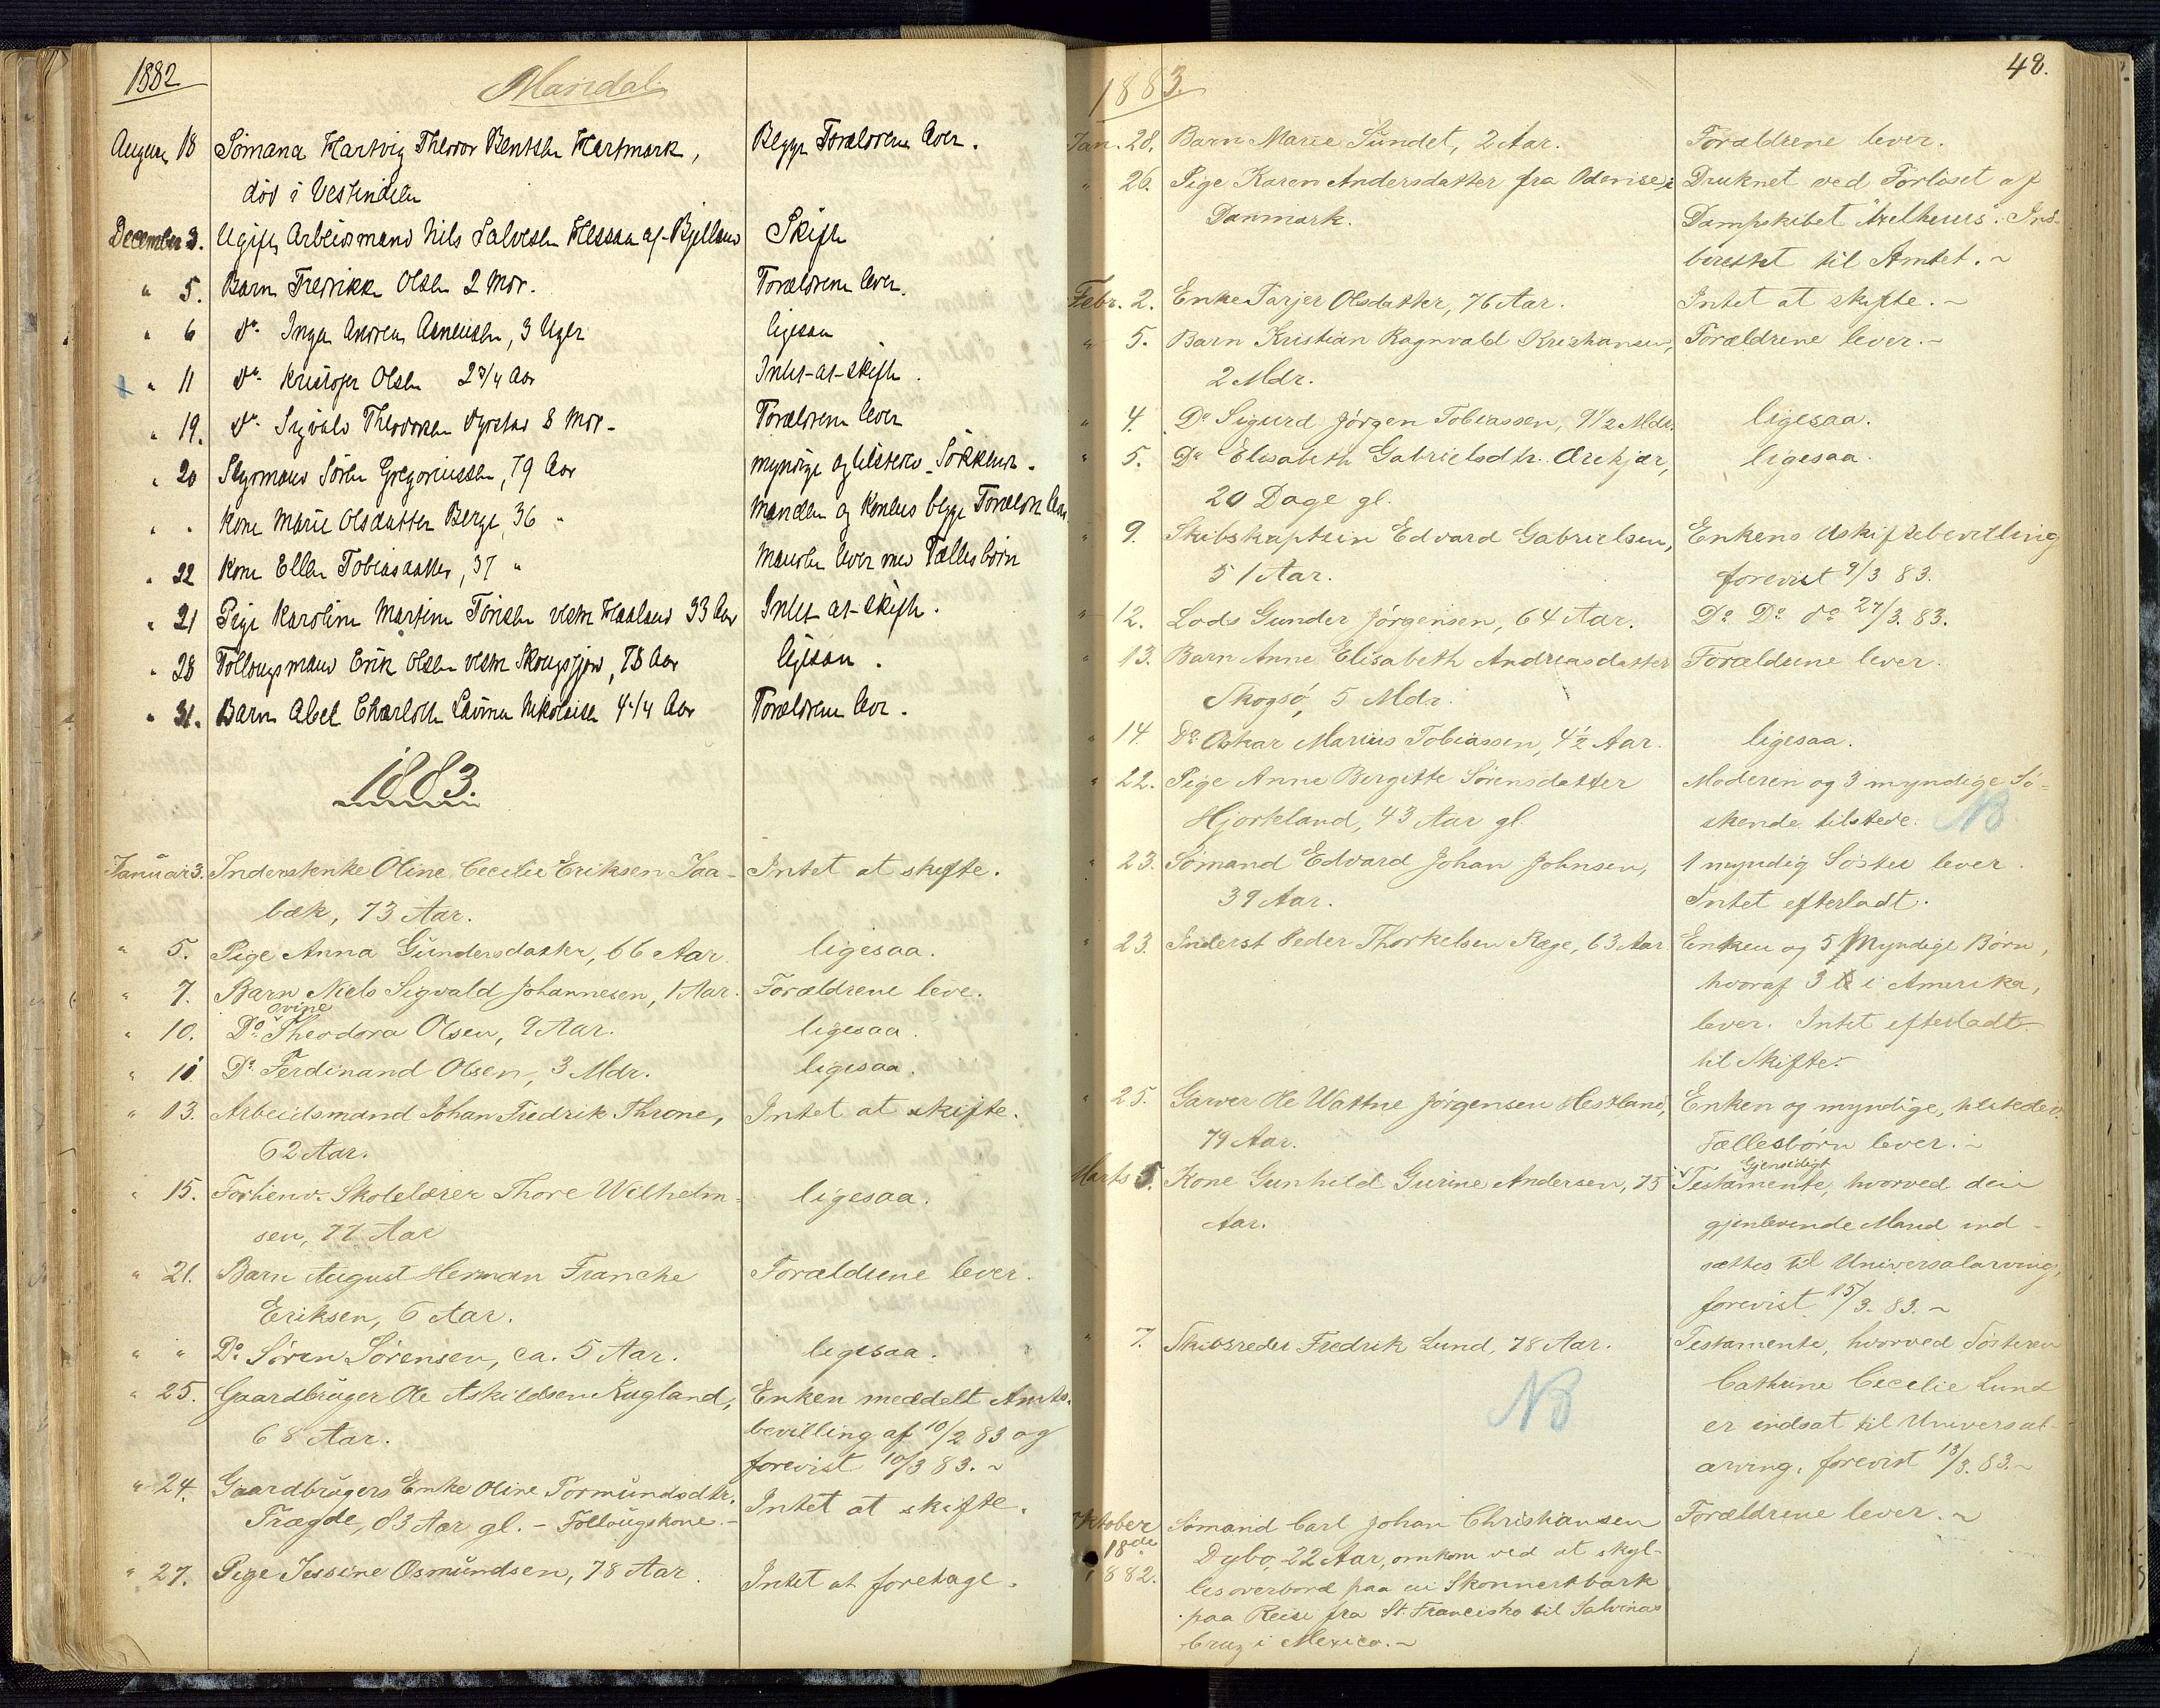 1882
Mandal
August 18 Sömand Hartvig Theodor Bentsen Hartmark, Begge Forældrene lever.
död i Vestindien
December 3. Ugift Arbeidsmand Nils Salvesen Hessaa af Bjelland Skifte
" 5. Barn Fredrikke Olsen 2 Mdr. Forældrene lever.
" 6 do. Inga Andrea Arnesen, 3 Uger ligesaa
" 11 do. Kristofer Olsen 2 3/4 Aar Intet at skifte.
" 19. do. Sigvald Theodorsen 8 Mdr. Forældrene lever
" 20 Styrmand Sören Gregoriussen, 79 Aar myndige og tilstede Söskende.
" " Kone Marie Olsdatter Berge, 36 " Manden og Konens begge Forældre lever
" 22 Kone Ellen Tobiasdatter, 37 " Manden lever med Fællesbörn
" 21 Pige Karoline Martine Tönnesen Haaland 33 Aar Intet at skifte.
" 28 Follougsmand Erik Olsen Skougsfjord, 78 Aar ligesaa.
" 31. Barn Abel Charlotte Lavina Nikolaisen 4 1/4 Aar Forældrene lever.
1883.
Januar 3. Inderstenke Oline Cecilie Eriksen Jaa- Intet at skifte.
bæk, 73 Aar.
" 5. Pige Anna Gundersdatter, 66 Aar. ligesaa.
" 7. Barn Niels Sigvald Johannesen, 1 Aar. Forældrene leve.
Ovine
" 10. Do. Theodora Olsen, 9 Aar. ligesaa.
" 11 Do. Ferdinand Olsen, 3 Mdr. ligesaa.
" 13. Arbeidsmand Johan Fredrik Throne, Intet at skifte.
62 Aar.
" 15. Forhenv. Skolelærer Thore Wilhelm- ligesaa.
sen, 77 Aar
" 21. Barn August Herman Franche Forældrene lever.
Eriksen, 6 Aar.
" " Do. Sören Sörensen, ca. 5 Aar. ligesaa.
" 25. Gaardbruger Ole Askildsen Rugland, Enken meddelt Amts-
68 Aar. bevilling af 10/2 83 og
forevist 10/3 83. ~
" 24. Gaardbrugers Enke Oline Tormundsdtr. Intet at skifte.
Trægde, 83 Aar gl. - Follougskone. -
" 27. Pige Jessine Osmundsen, 78 Aar. Intet at foretage.
1883.
48.
Jan. 28. Barn Marie Sundet, 2 Aar. Forældrene lever.
" 26. Pige Karen Andersdatter fra Odense i Druknet ved Forliset af
Danmark. Dampskibet "Axelhuus". Ind-
berettet til Amtet. ~
Febr. 2. Enke Tarjer Olsdatter, 76 Aar. Intet at skifte. ~
" 5. Barn Kristian Ragnvald Kristiansen, Forældrene lever. ~
2 Mdr.
" 4. Do Sigurd Jörgen Tobiassen, 9 1/2 Mdr. ligesaa.
" 5. Do Elisabeth Gabrielsdtr. Ørekjær, ligesaa.
20 Dage gl.
" 9. Skibskaptein Edvard Gabrielsen, Enkens Uskiftebevilling
51 Aar. forevist 9/3 83.
" 12. Lods Gunder Jörgensen, 64 Aar. Do Do do 27/3. 83.
" 13. Barn Anne Elisabeth Andreasdatter Forældrene lever.
Skogsö, 5 Mdr.
" 14. Do. Oskar Marius Tobiassen, 4 1/2 Aar. ligesaa.
" 22. Pige Anne Birgitte Sörensdatter Moderen og 3 myndige Sö-
Hjorteland, 43 Aar gl. skende tilstede. NB
" 23. Sömand Edvard Johan Johnsen, 1 myndig Söster lever.
39 Aar. Intet efterladt.
" 23. Inderst Peder Thorkelsen Rege, 63 Aar. Enken og 5 Myndige Börn,
hvoraf 3 i Amerika,
lever. Intet efterladt
til Skifte.
" 25. Garver Ole Wattne Jörgensen Hestland, Enken og myndige, tilstedev.
79 Aar. Fællesbörn lever. ~
Gjensidigt
Marts 5. Kone Gunhild Gurine Andersen, 75 Testamente, hvorved den
Aar. gjenlevende Mand ind-
sættes til Universalarving,
forevist 15/3. 83. ~
" 7. Skibsreder Fredrik Lund, 78 Aar. Testamente, hvorved Sösteren
Cathrine Cecilie Lund
NB er indsat til Universal-
arving, forevist 13/3. 83. ~
Oktober Sömand Carl Johan Christiansen Forældrene lever. ~
18de Dybo, 22 Aar, omkom ved at skyl-
1882. les overbord paa en Skonnertbark
paa Reise fra St. Francisko til Salvinas
Cruz i Mexico. ~